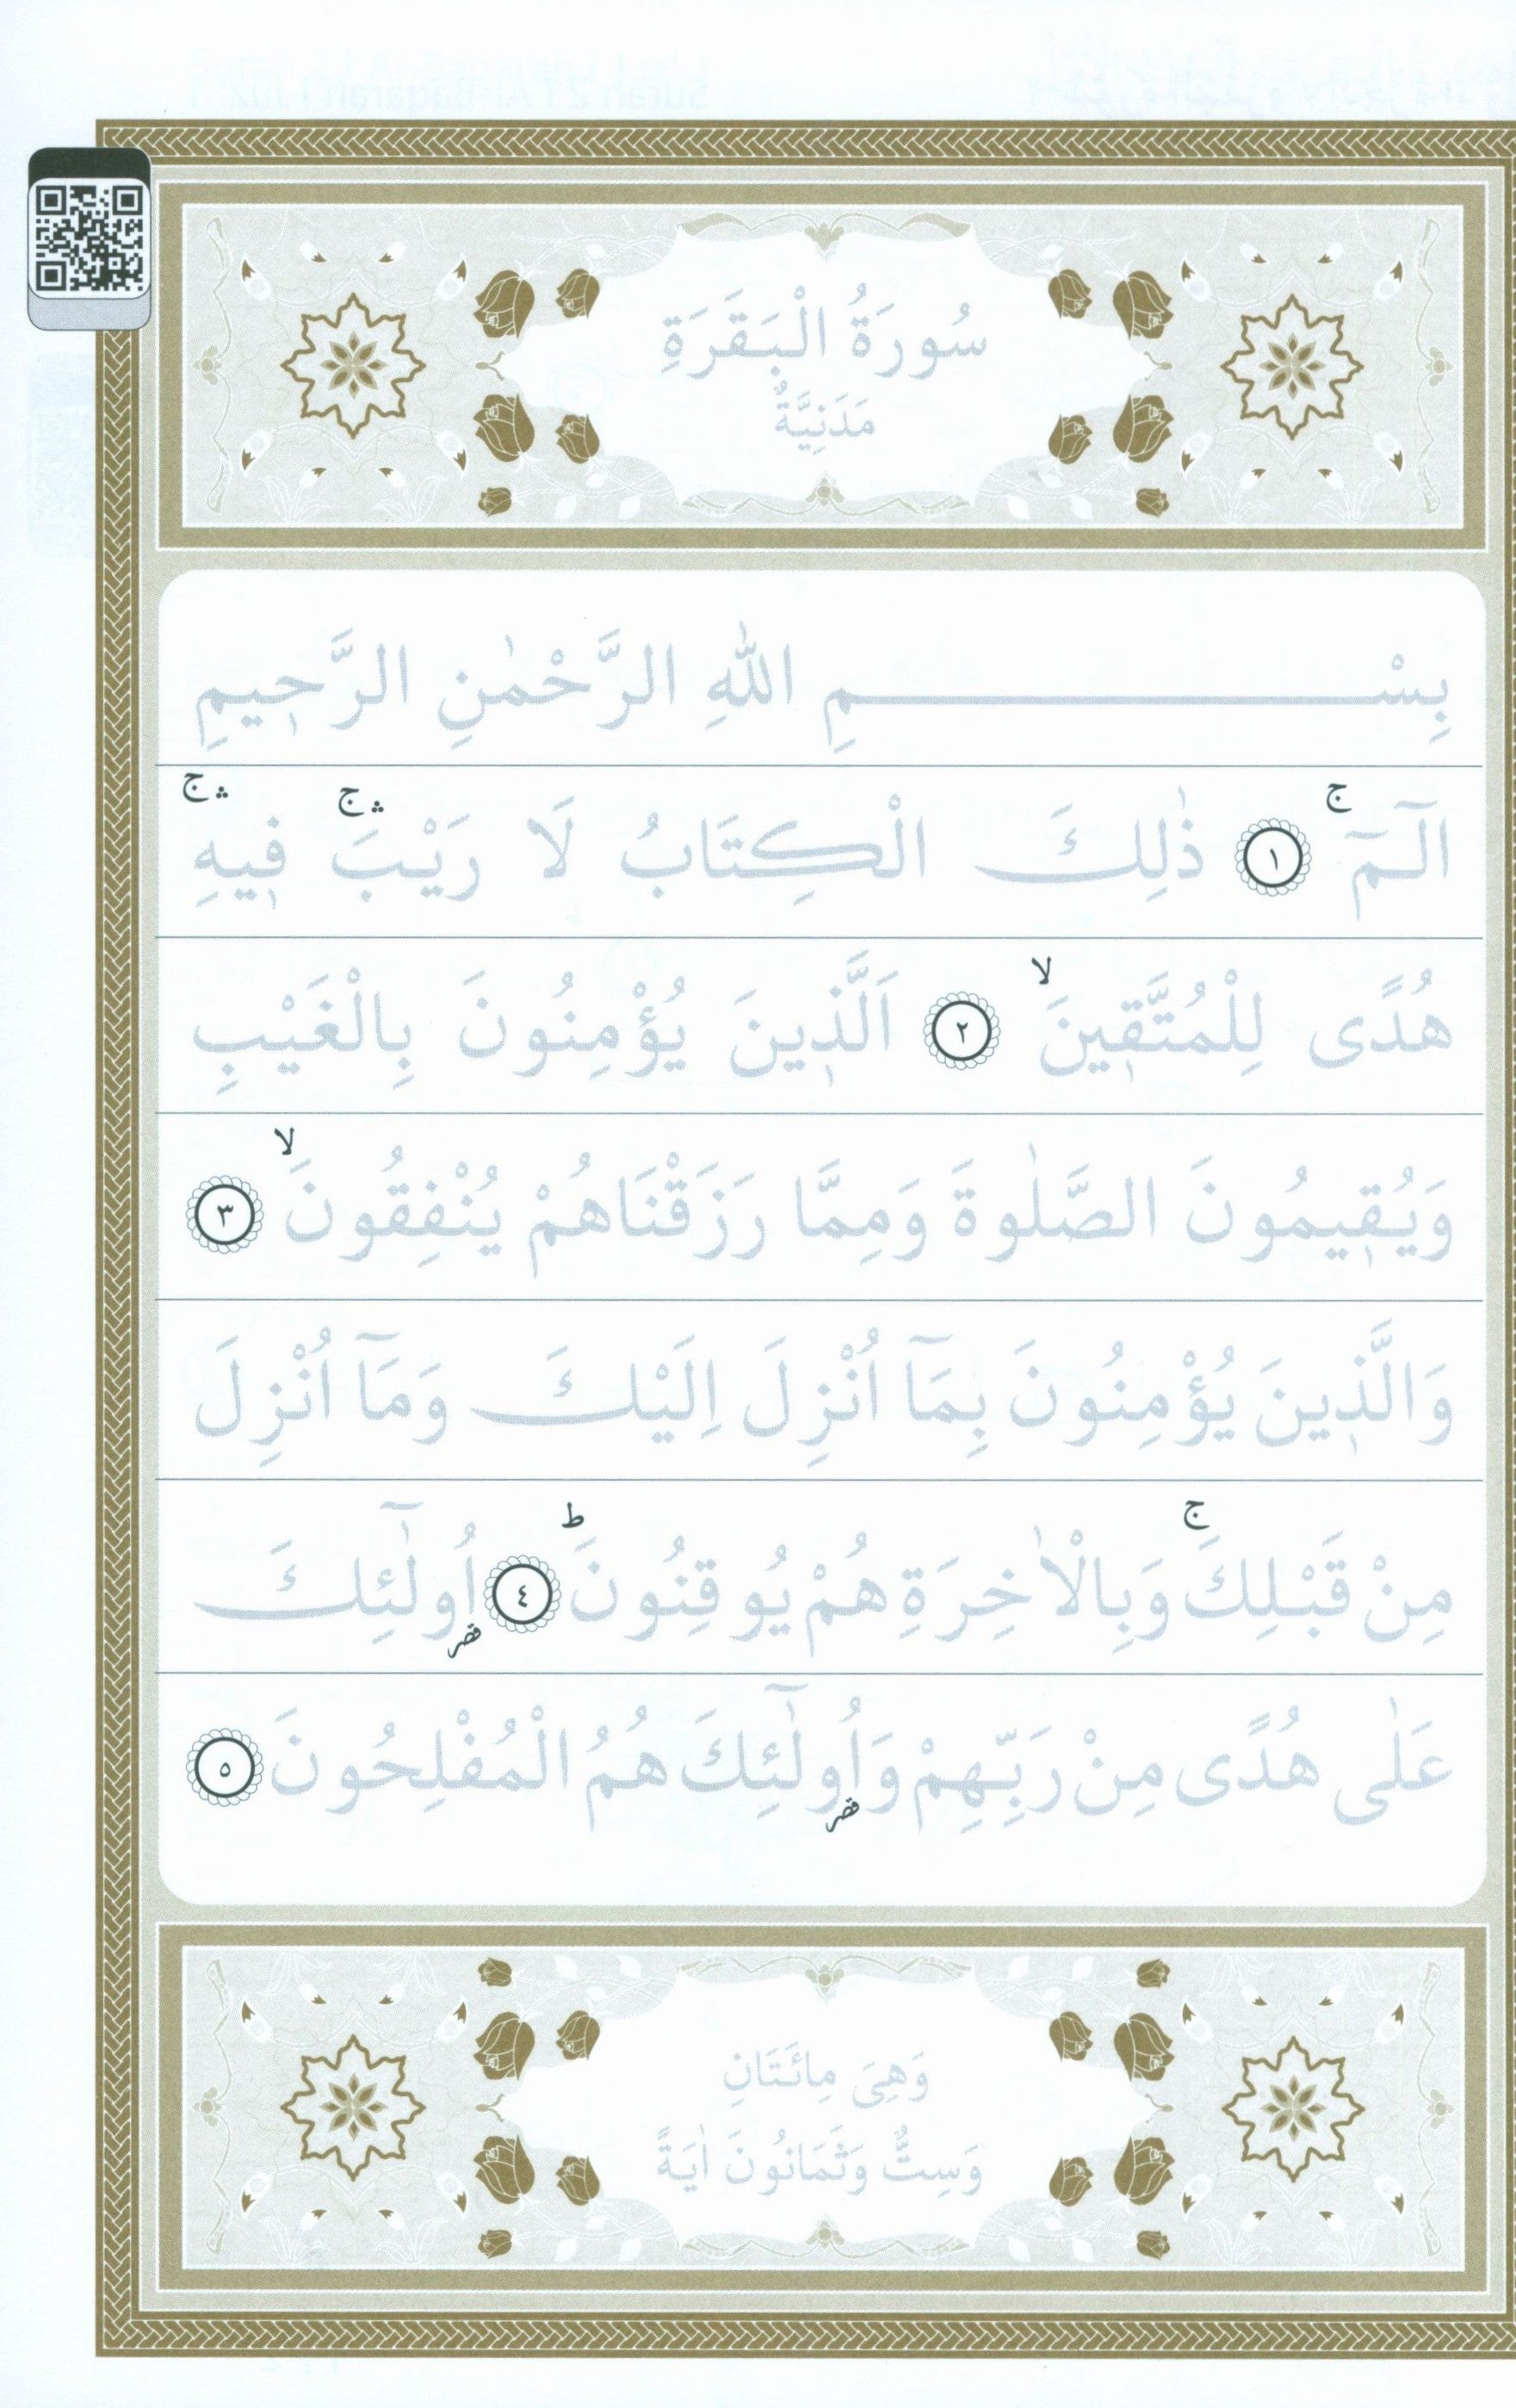 سُورَةُ الْبَقَرَةِ
مَدَنِيَّةٌ
بِسْـــــــــــــــمِ اللّٰهِ الرَّحْمٰنِ الرَّح۪يمِ
الٓمٓ ۚ ﴿١﴾ ذٰلِكَ الْكِتَابُ لَا رَيْبَ ۚۛ ف۪يهِ ۚۛ
هُدًى لِلْمُتَّق۪ينَ ۙ ﴿٢﴾ اَلَّذ۪ينَ يُؤْمِنُونَ بِالْغَيْبِ
وَيُق۪يمُونَ الصَّلٰوةَ وَمِمَّا رَزَقْنَاهُمْ يُنْفِقُونَ ۙ ﴿٣﴾
وَالَّذ۪ينَ يُؤْمِنُونَ بِمَٓا اُنْزِلَ اِلَيْكَ وَمَٓا اُنْزِلَ
مِنْ قَبْلِكَ ۚ وَبِالْاٰخِرَةِ هُمْ يُوقِنُونَ ۜ ط ﴿٤﴾ اُو۬لٰٓئِكَ قصر
عَلٰى هُدًى مِنْ رَبِّهِمْ وَاُو۬لٰٓئِكَ قصر هُمُ الْمُفْلِحُونَ ﴿٥﴾
وَهِىَ مِائَتَانِ
وَسِتٌّ وَثَمَانُونَ اٰيَةً